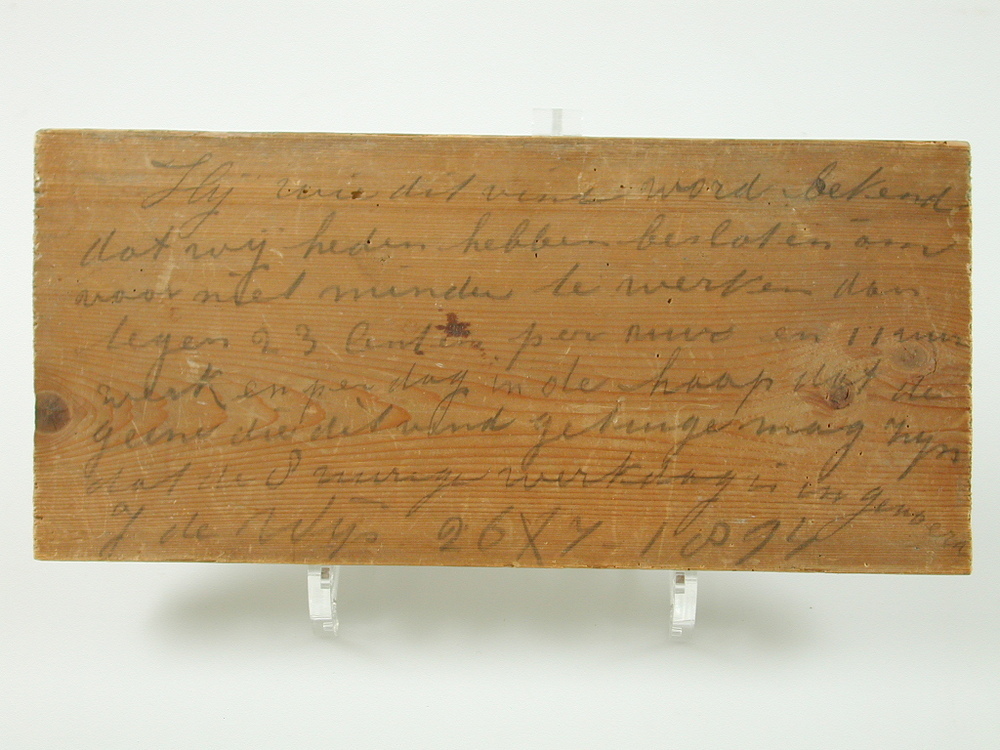 Hij wie dit vind word bekend
dat wij heden hebben besloten om
voor niet minder te werken dan
tegen 23 Centen per uur en 11 uur
werken per dag in de hoop dat de
geene die dit vind getuige mag zijn
dat de 8 urige werkdag is ingevoerd
J de Wijs 26 X 7 1894